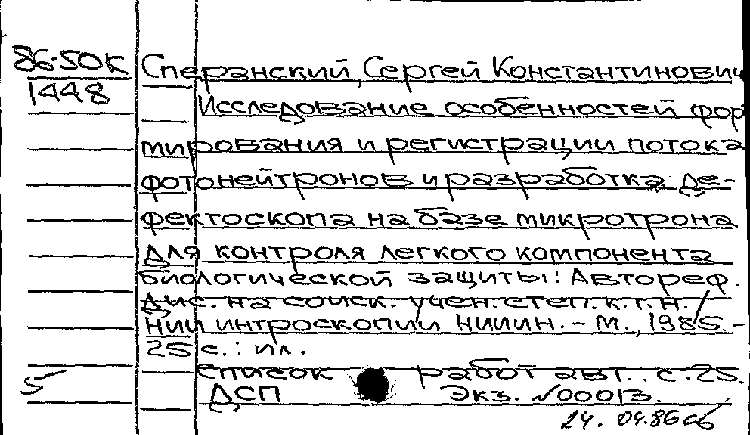 86-50К Сперанский, Сергей Константинович
1448 Исследование особенностей фор
мирования и регистрации потока
фотонейтронов и разработка де-
фектоскопа на базе микротрона
для контроля легкого компонента
биологической защиты: Автореф.
дис. на соиск. учен. степ. к.т.н. /
НИИ интроскопии. - М., 1985. -
25 с.: ил.
Список работ авт. с. 25.
ДСП Экз. №00013.
24. 04.86